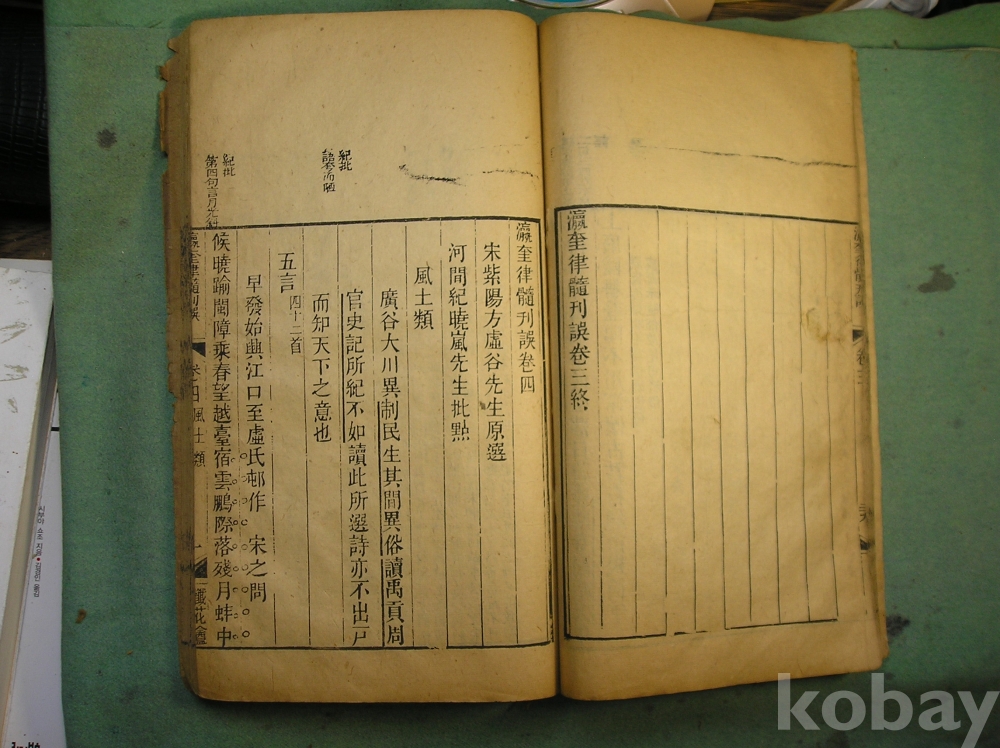 瀛奎律髓刊誤卷三終
瀛奎律髓刊誤卷四
宋紫陽方虛谷先生原選
河間紀曉嵐先生批點
風土類
廣谷大川異制民生其間異俗讀禹貢周
官史記所紀不如讀此所選詩亦不出戶
而知天下之意也
五言 四十二首
早發始興江口至虛氏邨作 宋之問
候曉踰閩障乘春望越臺宿雲鵬際落殘月蚌中
紀批
紀批
第四句言月光
瀛奎律髓刊誤
卷四 風土類
一
懺花盦
卷三
kobay